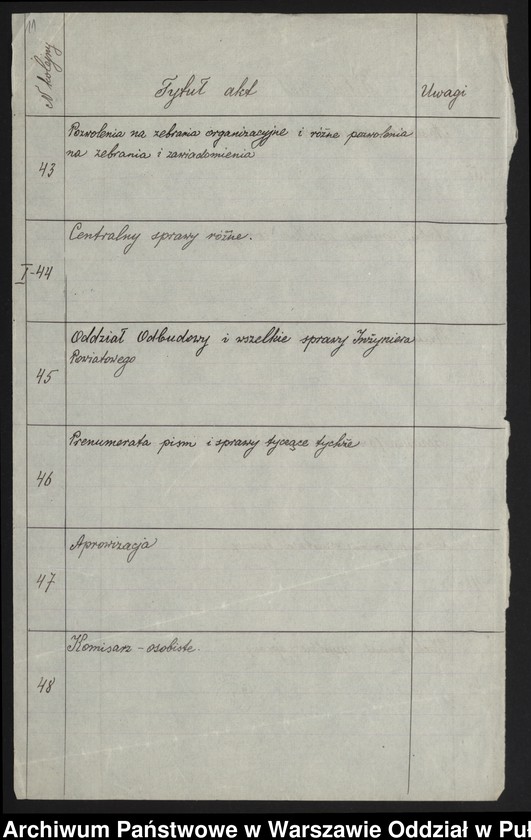 11
N kolejny
Tytuł akt
Uwagi
43
Pozwolenia na zebrania organizacyjne i różne pozwolenia
na zebrania i zawiadomienia
I-44
Centralny sprawy różne.
45
Oddział Odbudowy i wszelkie sprawy Inżyniera
Powiatowego
46
Prenumerata pism i sprawy tyczące tychże
47
Aprowizacja
48
Komisarz - osobiste.
Archiwum Państwowe w Warszawie Oddział w Puł